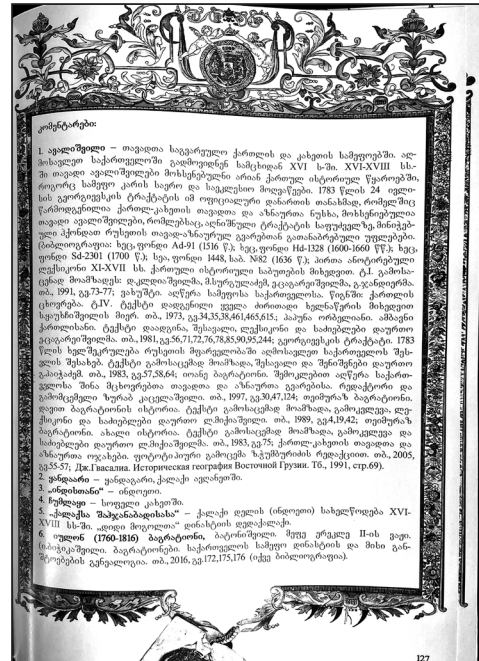 კომენტარები:
1. ავალიშვილი – თავადთა საგვარეულო ქართლის და კახეთის სამეფოებში. აღ-
მოსავლეთ საქართველოში გადმოვიდნენ სამცხიდან XVI ს-ში. XVI-XVIII სს.-
ში თავადი ავალიშვილები მოხსენებულნი არიან ქართულ ისტორიულ წყაროებში,
როგორც სამეფო კარის საერო და საეკლესიო მოღვაწეები. 1783 წლის 24 ივლი-
სის გეორგიევსკის ტრაქტატის იმ ოფიციალური დანართის თანახმად, რომელშიც
წარმოდგენილია ქართლ-კახეთის თავადთა და აზნაურთა ნუსხა, მოხსენიებულია
თავადი ავალიშვილები, რომლებსაც, აღნიშნული ტრაქტატის საფუძველზე, მინიჭებ-
ული ჰქონდათ რუსეთის თავად-აზნაურულ გვარებთან გათანაბრებული უფლებები.
(ბიბლიოგრაფია: ხეც, ფონდი Ad-91 (1516 წ.); ხეც, ფონდი Hd-1328 (1600-1660 წწ.); ხეც,
ფონდი Sd-2301 (1700 წ.); სეა, ფონდი 1448, საბ. №82 (1636 წ.); პირთა ანოტირებული
ლექსიკონი XI-XVII სს. ქართული ისტორიული საბუთების მიხედვით. ტ.I. გამოსა-
ცემად მოამზადეს: დ.კლდიაშვილმა, მ.სურგულაძემ, ე.ცაგარეიშვილმა, გ.ჯანდიერმა.
თბ., 1991, გვ.73-77; ვახუშტი. აღწერა სამეფოსა საქართველოსა. წიგნში ქართლის
ცხოვრება. ტ.IV. ტექსტი დადგენილი ყველა ძირითადი ხელნაწერის მიხედვით
ს.ყაუხჩიშვილის მიერ. თბ., 1973, გვ.34,35,38,461,465,615.; პაპუნა ორბელიანი. ამბავნი
ქართლისანი. ტექსტი დაადგინა, შესავალი, ლექსიკონი და საძიებლები დაურთო
ე.ცაგარეიშვილმა. თბ., 1981, გვ.56,71,72,76,78,85,90,95,244; გეორგიევსკის ტრაქტატი. 1783
წლის ხელშეკრულება რუსეთის მფარველობაში აღმოსავლეთ საქართველოს შეს-
ვლის შესახებ. ტექსტი გამოსაცემად მოამზადა, შესავალი და შენიშვნები დაურთო
გ.პაიჭაძემ. თბ., 1983, გვ.57,58,64; იოანე ბაგრატიონი. შემოკლებით აღწერა საქართ-
ველოსა შინა მცხოვრებთა თავადთა და აზნაურთა გვარებისა. რედაქტორი და
გამომცემელი ზურაბ კაცელაშვილი. თბ., 1997, გვ.30,47,124; თეიმურაზ ბაგრატიონი.
დავით ბაგრატიონის ისტორია. ტექსტი გამოსაცემად მოამზადა, გამოკვლევა, ლე-
ქსიკონი და საძიებლები დაურთო ლ.მიქიაშვილმა. თბ., 1989, გვ.4,19,42; თეიმურაზ
ბაგრატიონი. ახალი ისტორია. ტექსტი გამოსაცემად მოამზადა, გამოკვლევა და
საძიებლები დაურთო ლ.მიქიაშვილმა. თბ., 1983, გვ.75; ქართლ-კახეთის თავადთა და
აზნაურთა ოჯახები. ფოტოტიპური გამოცემა ზ.ჭუმბურიძის რედაქციით. თბ., 2005,
გვ.55-57; Дж.Гвасалиа. Историческая география Восточной Грузии. Тб., 1991, стр.69).
2. ყანდაარი – ყანდაგარი, ქალაქი ავღანეთში.
3. „ინდისთანი“ – ინდოეთი.
4. ჩუმლაყი – სოფელი კახეთში.
5. „ქალაქსა შაჰჯანაბადისასა“ – ქალაქი დელის (ინდოეთი) სახელწოდება XVI-
XVIII სს-ში. „დიდი მოგოლთა“ დინასტიის დედაქალაქი.
6. იულონ (1760-1816) ბაგრატიონი, ბატონიშვილი. მეფე ერეკლე II-ის ვაჟი.
(ი.ბიჭიკაშვილი. ბაგრატიონები. საქართველოს სამეფო დინასტიის და მისი გან-
შტოებების გენეალოგია. თბ., 2016, გვ.172,175,176 (იქვე ბიბლიოგრაფია).
127